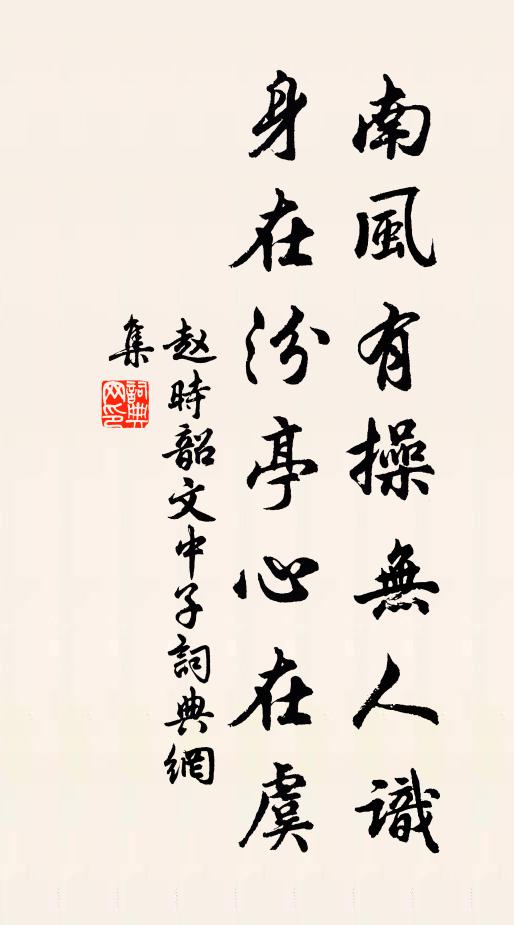 南風有操無人識
身在汾亭心在虞
赵時韶文中子詞典網
集
詞典網印